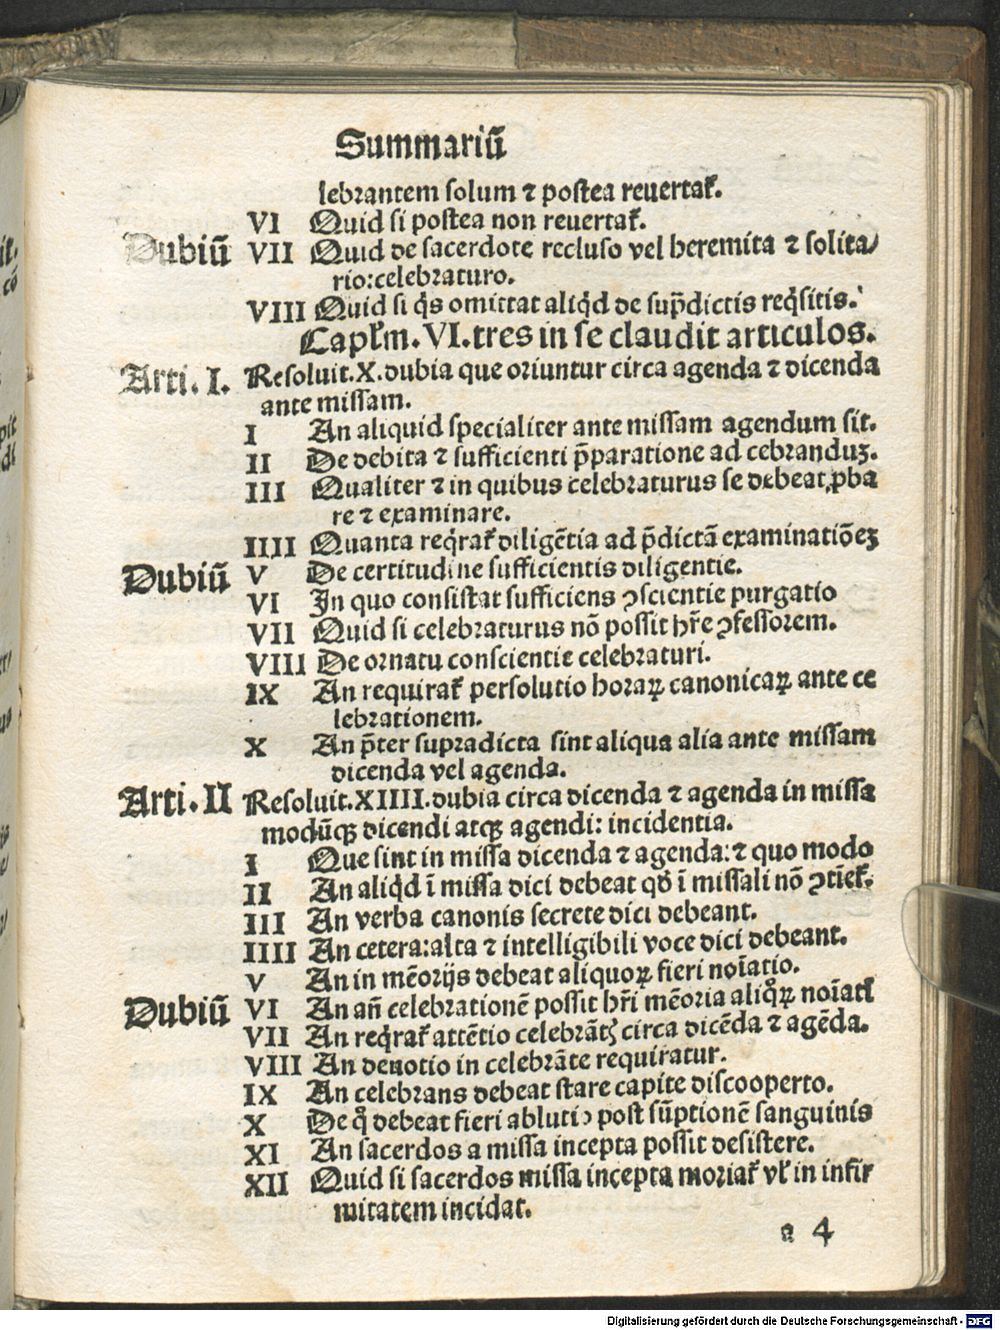 Summariū
lebrantem solum ⁊ postea reuertat̄.
VI Quid si postea non reuertat̄.
Dubiū VII Quid de sacerdote recluso vel heremita ⁊ solita/
rio:celebraturo.
VIII Quid si q̇s omittat aliq̇d de sup̄dictis req̇sitis.
Caplm̄.VI.tres in se claudit articulos.
Arti.I. Resoluit.X.dubia que oriuntur circa agenda ⁊ dicenda
ante missam.
I An aliquid specialiter ante missam agendum sit.
II De debita ⁊ sufficienti p̄paratione ad cebranduꝫ.
III Qualiter ⁊ in quibus celebraturus se debeat ꝓba
re ⁊ examinare.
IIII Quanta req̇rat̄ diligētia ad p̄dictā examinatiōeꝫ
Dubiū V De certitudine sufficientis diligentie.
VI In quo consistat sufficiens ꝯscientie purgatio
VII Quid si celebraturus nō possit hr̄e ꝯfessorem.
VIII De ornatu conscientie celebraturi.
IX An requirat̄ persolutio horaꝝ canonicaꝝ ante ce
lebrationem.
X An p̄ter supradicta sint aliqua alia ante missam
dicenda vel agenda.
Arti.II Resoluit.XIIII.dubia circa dicenda ⁊ agenda in missa
modūqꝫ dicendi atqꝫ agendi: incidentia.
I Que sint in missa dicenda ⁊ agenda:⁊ quo modo
II An aliq̇d ī missa dici debeat qđ ī missali nō ꝯtiet̄.
III An verba canonis secrete dici debeant.
IIII An cetera:alta ⁊ intelligibili voce dici debeant.
V An in mēorijs debeat aliquoꝝ fieri noīatio.
Dubiū VI An añ celebrationē possit hr̄i mēoria aliq̊ꝝ noīatī
VII An req̇rat̄ attētio celebrātꝭ circa dicēda ⁊ agēda.
VIII An deuotio in celebrāte requiratur.
IX An celebrans debeat stare capite discooperto.
X De q̊ debeat fieri ablutio post sūptionē sanguinis
XI An sacerdos a missa incepta possit desistere.
XII Quid si sacerdos missa incepta moriat̄ vł in infir
mitatem incidat.
a 4
Digitalisierung gefördert durch die Deutsche Forschungsgemeinschaft - DFG